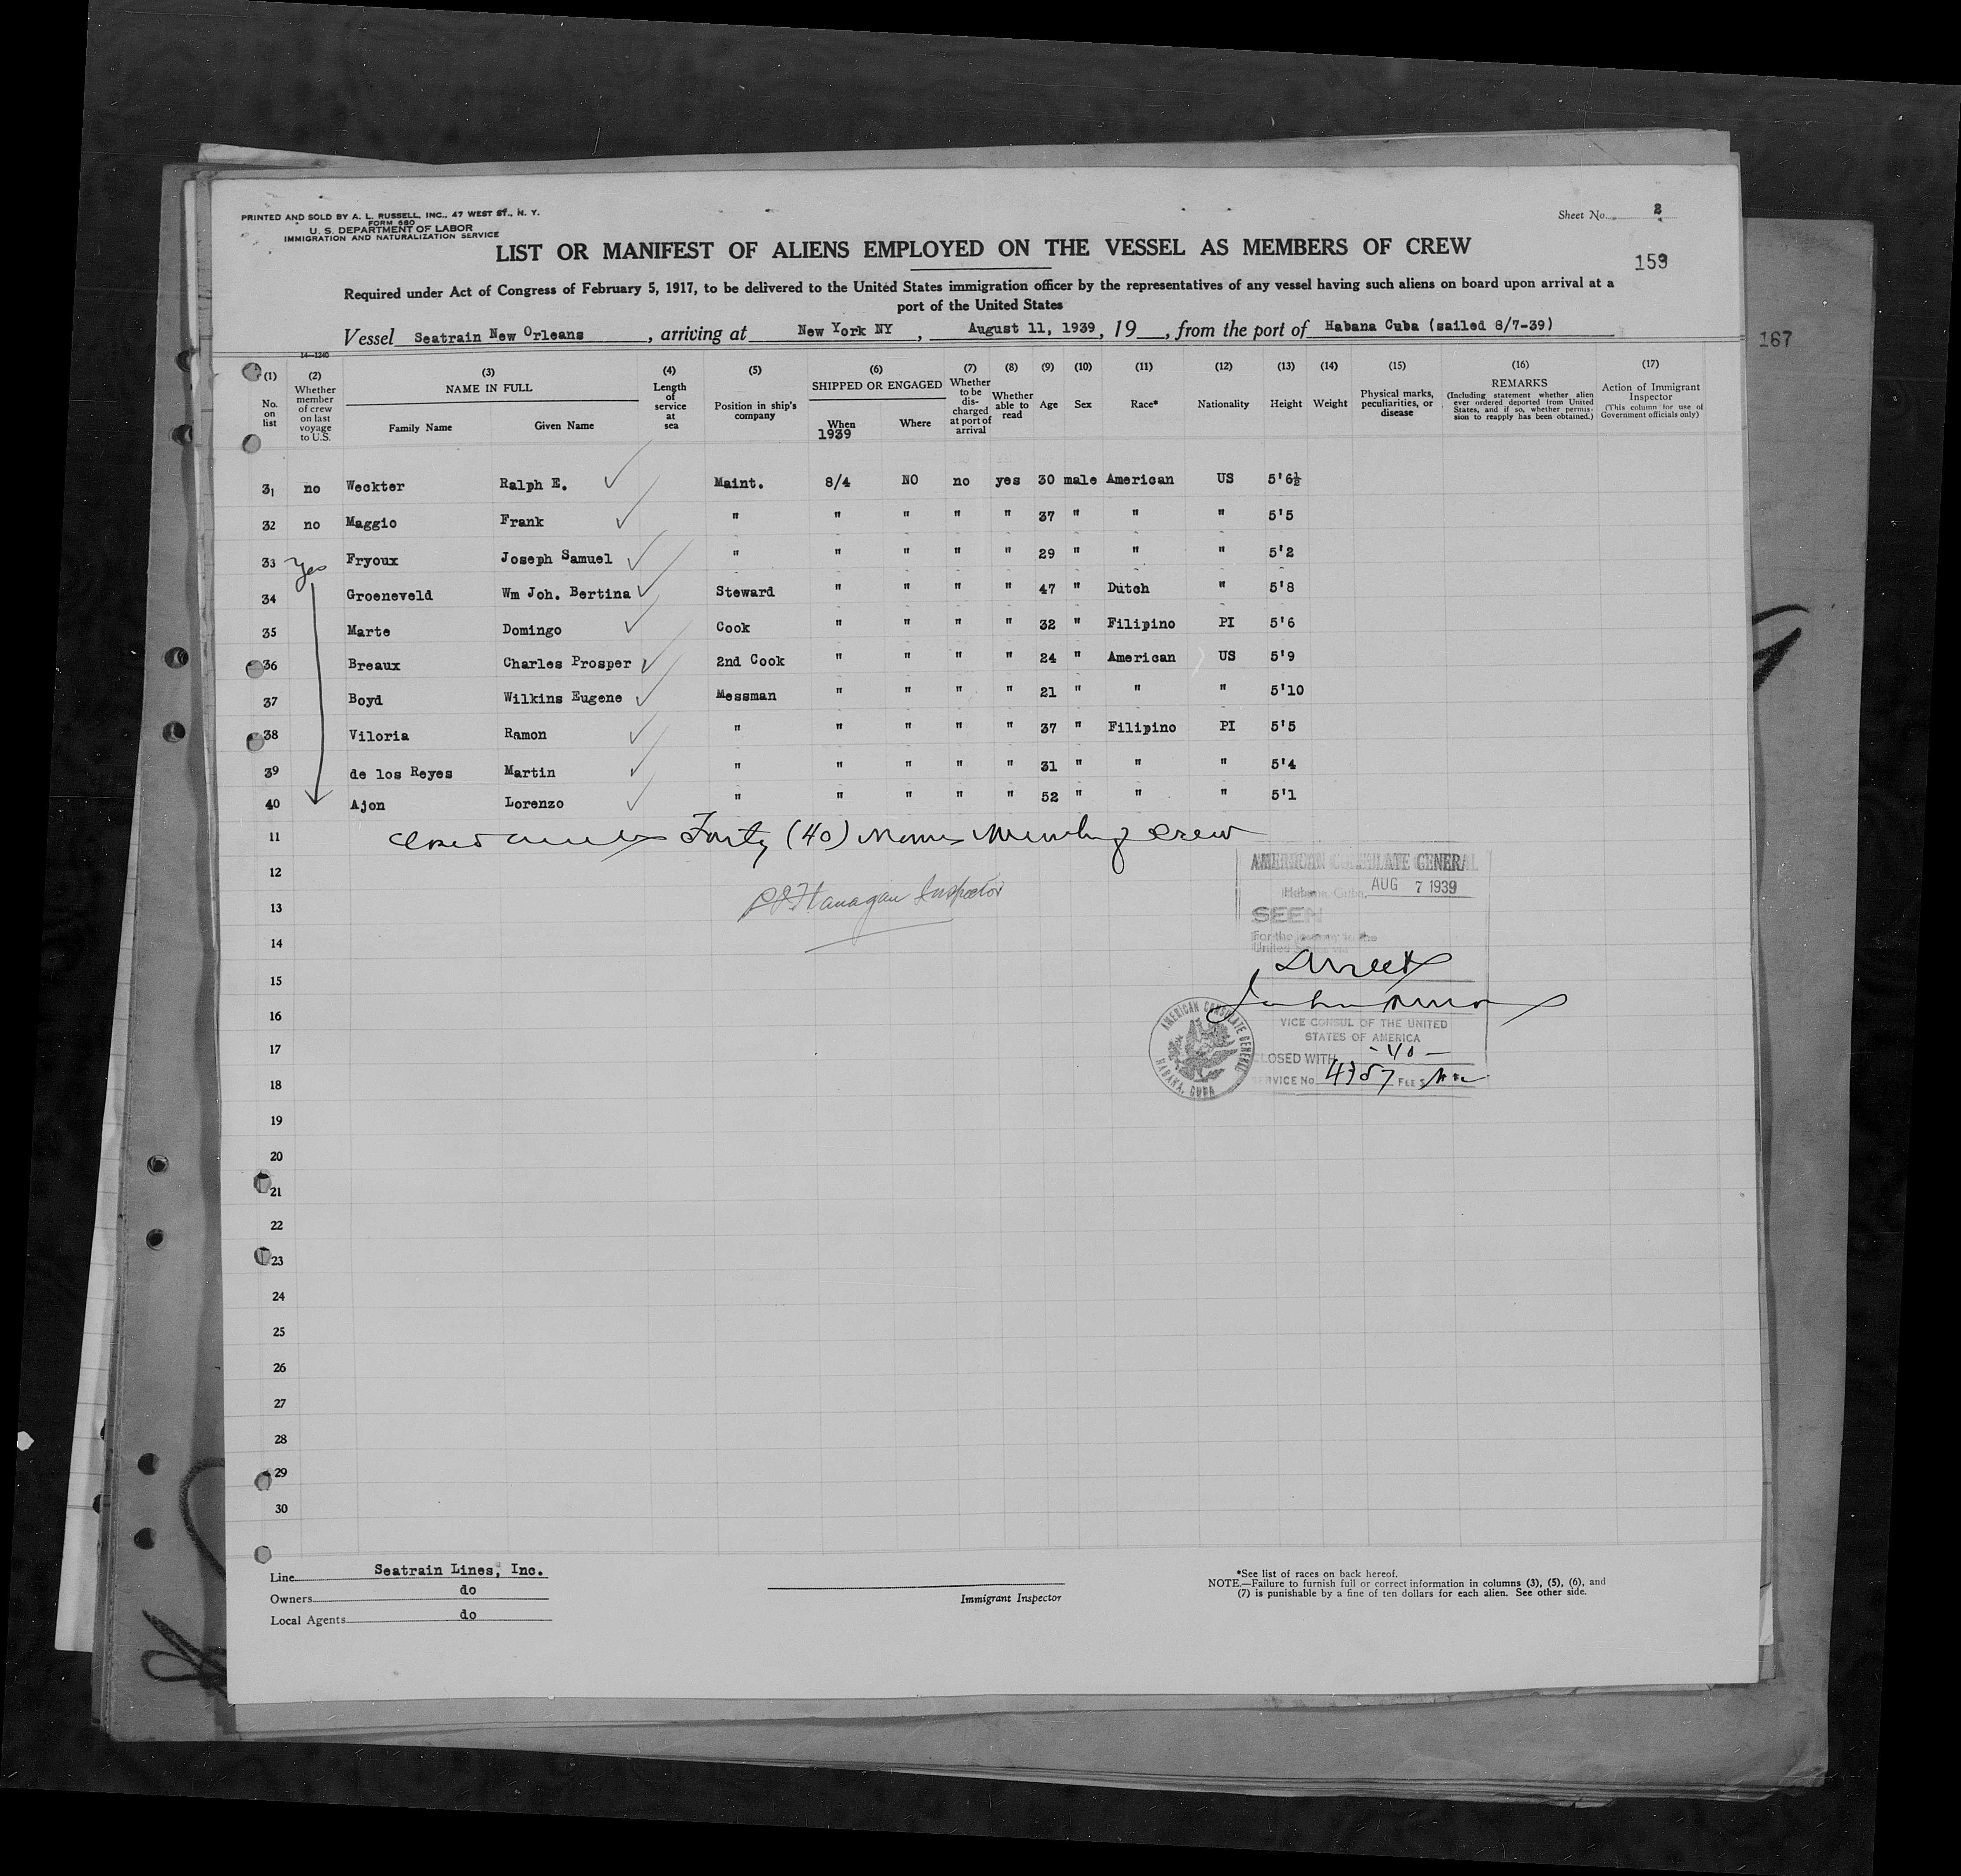 PRINTED AND SOLD BY A. L. RUSSELL, INC., 47 WEST ST., N. Y.
FORM 680
U. S. DEPARTMENT OF LABOR
IMMIGRATION AND NATURALIZATION SERVICE
Sheet No. 2
LIST OR MANIFEST OF ALIENS EMPLOYED ON THE VESSEL AS MEMBERS OF CREW
159
Required under Act of Congress of February 5, 1917, to be delivered to the United States immigration officer by the representatives of any vessel having such aliens on board upon arrival at a
port of the United States
Vessel Seatrain New Orleans, arriving at New York NY, August 11, 1939, 19, from the port of Habana Cuba (sailed 8/7-39)
167
14—1240
(1) No. on list
(2) Whether member of crew on last voyage to U.S.
(3) NAME IN FULL Family Name Given Name
(4) Length of service at sea
(5) Position in ship's company
(6) SHIPPED OR ENGAGED When 1939 Where
(7) Whether to be discharged at port of arrival
(8) Whether able to read
(9) Age
(10) Sex
(11) Race*
(12) Nationality
(13) Height
(14) Weight
(15) Physical marks, peculiarities, or disease
(16) REMARKS (Including statement whether alien ever ordered deported from United States, and if so, whether permission to reapply has been obtained.)
(17) Action of Immigrant Inspector (This column for use of Government officials only)
31 no Weckter Ralph E. Maint. 8/4 NO no yes 30 male American US 5'6½
32 no Maggio Frank " " " " " 37 " " " 5'5
33 Yes Fryoux Joseph Samuel " " " " " 29 " " " 5'2
34 Groeneveld Wm Joh. Bertina Steward " " " " 47 " Dutch " 5'8
35 Marte Domingo Cook " " " " 32 " Filipino PI 5'6
36 Breaux Charles Prosper 2nd Cook " " " " 24 " American US 5'9
37 Boyd Wilkins Eugene Messman " " " " 21 " " " 5'10
38 Viloria Ramon " " " " " 37 " Filipino PI 5'5
39 de los Reyes Martin " " " " " 31 " " " 5'4
40 Ajon Lorenzo " " " " " 52 " " " 5'1
11 Forty (40) Crew
12
13 Flanagan Inspector
14
15
16
17
18
19
20
21
22
23
24
25
26
27
28
29
30
AMERICAN CONSULATE GENERAL
Habana, Cuba, AUG 7 1939
SEEN
For the journey to the
United States via
Direct
VICE CONSUL OF THE UNITED
STATES OF AMERICA
CLOSED WITH - 40 -
SERVICE No. 4387 FEE $
AMERICAN CONSULATE GENERAL
HABANA, CUBA
Line Seatrain Lines, Inc.
Owners do
Local Agents do
Immigrant Inspector
*See list of races on back hereof.
NOTE.—Failure to furnish full or correct information in columns (3), (5), (6), and
(7) is punishable by a fine of ten dollars for each alien. See other side.